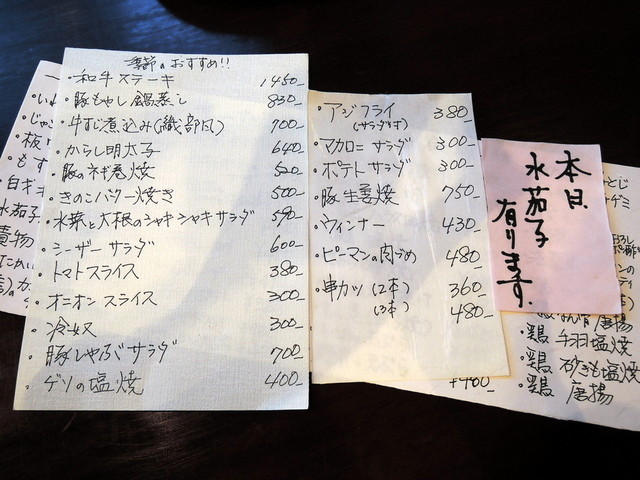 季節のおすすめ!!
・和牛ステーキ 1450-
・豚もやし鍋蒸し 830-
・牛すじ煮込み(織部風) 700-
・からし明太子 640-
・豚のネギ巻焼 520-
・きのこバター焼き 500-
・水菜と大根のシャキシャキサラダ 590-
・シーザーサラダ 600-
・トマトスライス 380-
・オニオンスライス 300-
・冷奴 300-
・豚しゃぶサラダ 700-
・ゲソの塩焼 400-
・アジフライ 380-
(サラダ付)
・マカロニサラダ 300-
・ポテトサラダ 300-
・豚生姜焼 750-
・ウィンナー 430-
・ピーマンの肉づめ 480-
・串カツ(2本) 360-
(3本) 480-
本日
水茄子
有ります。
唐揚
・鶏 手羽塩焼
・鶏 砂ぎも塩焼
・鶏 唐揚
水茄子
漬物